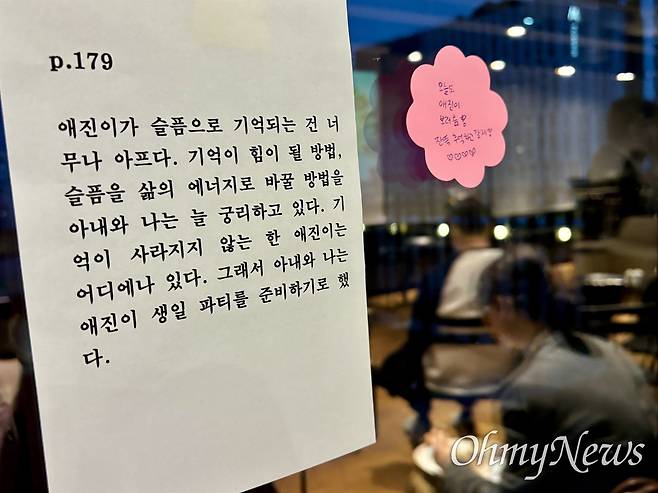 p.179
애진이가 슬픔으로 기억되는 건 너
무나 아프다. 기억이 힘이 될 방법,
슬픔을 삶의 에너지로 바꿀 방법을
아내와 나는 늘 궁리하고 있다. 기
억이 사라지지 않는 한 애진이는
어디에나 있다. 그래서 아내와 나는
애진이 생일 파티를 준비하기로 했
다.
오늘도
애진이
보러 왔어
잔뜩 추억하고 갈게
♡♡♡♡
OhmyNews